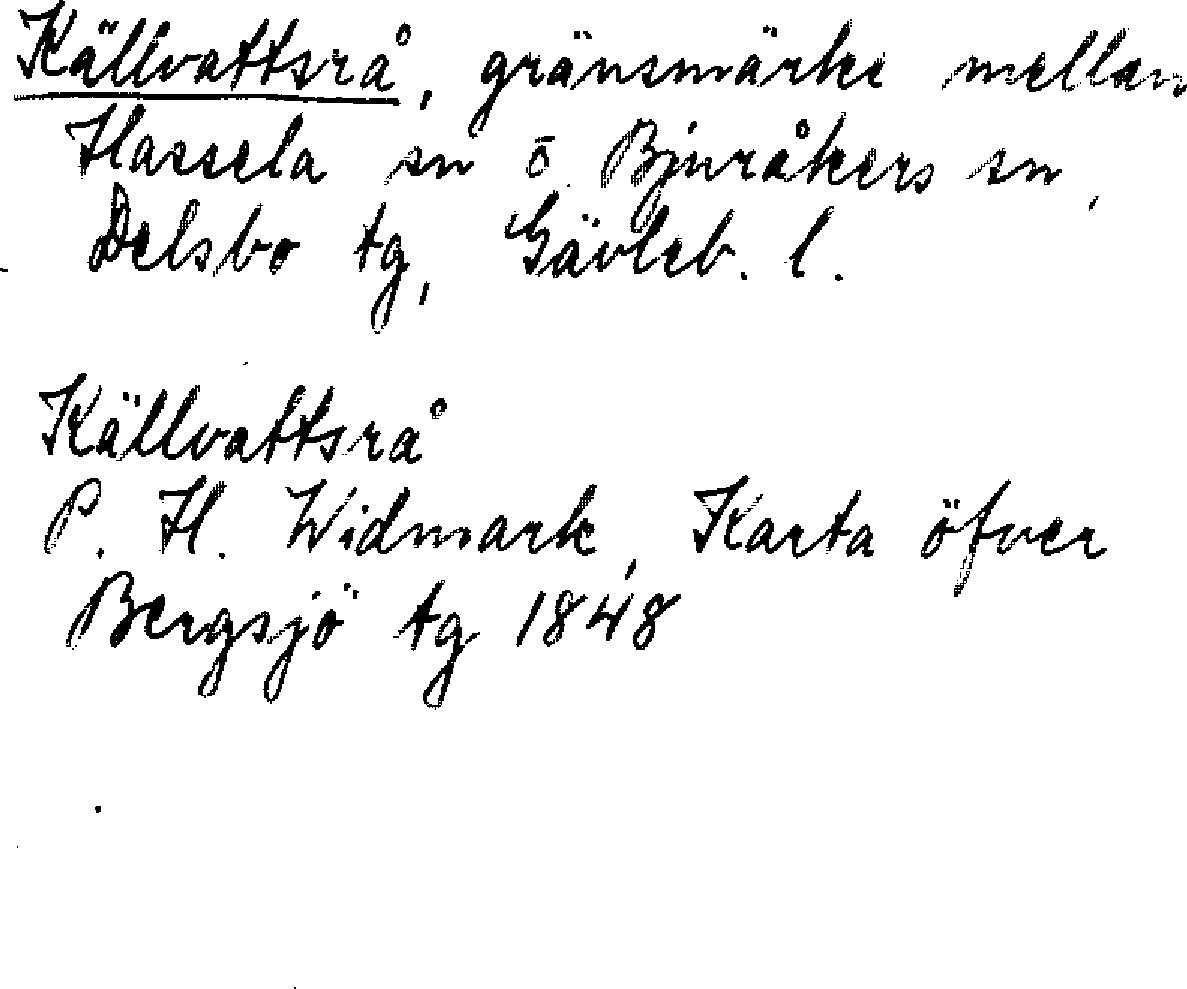 Källvattsrå, gränsmärke mellan
Hassela sn o. Bjuråkers sn,
Delsbo tg, Gävleb. l.
Källvattsrå
P. H. Widmark, Karta öfver
Bergsjö tg 1848